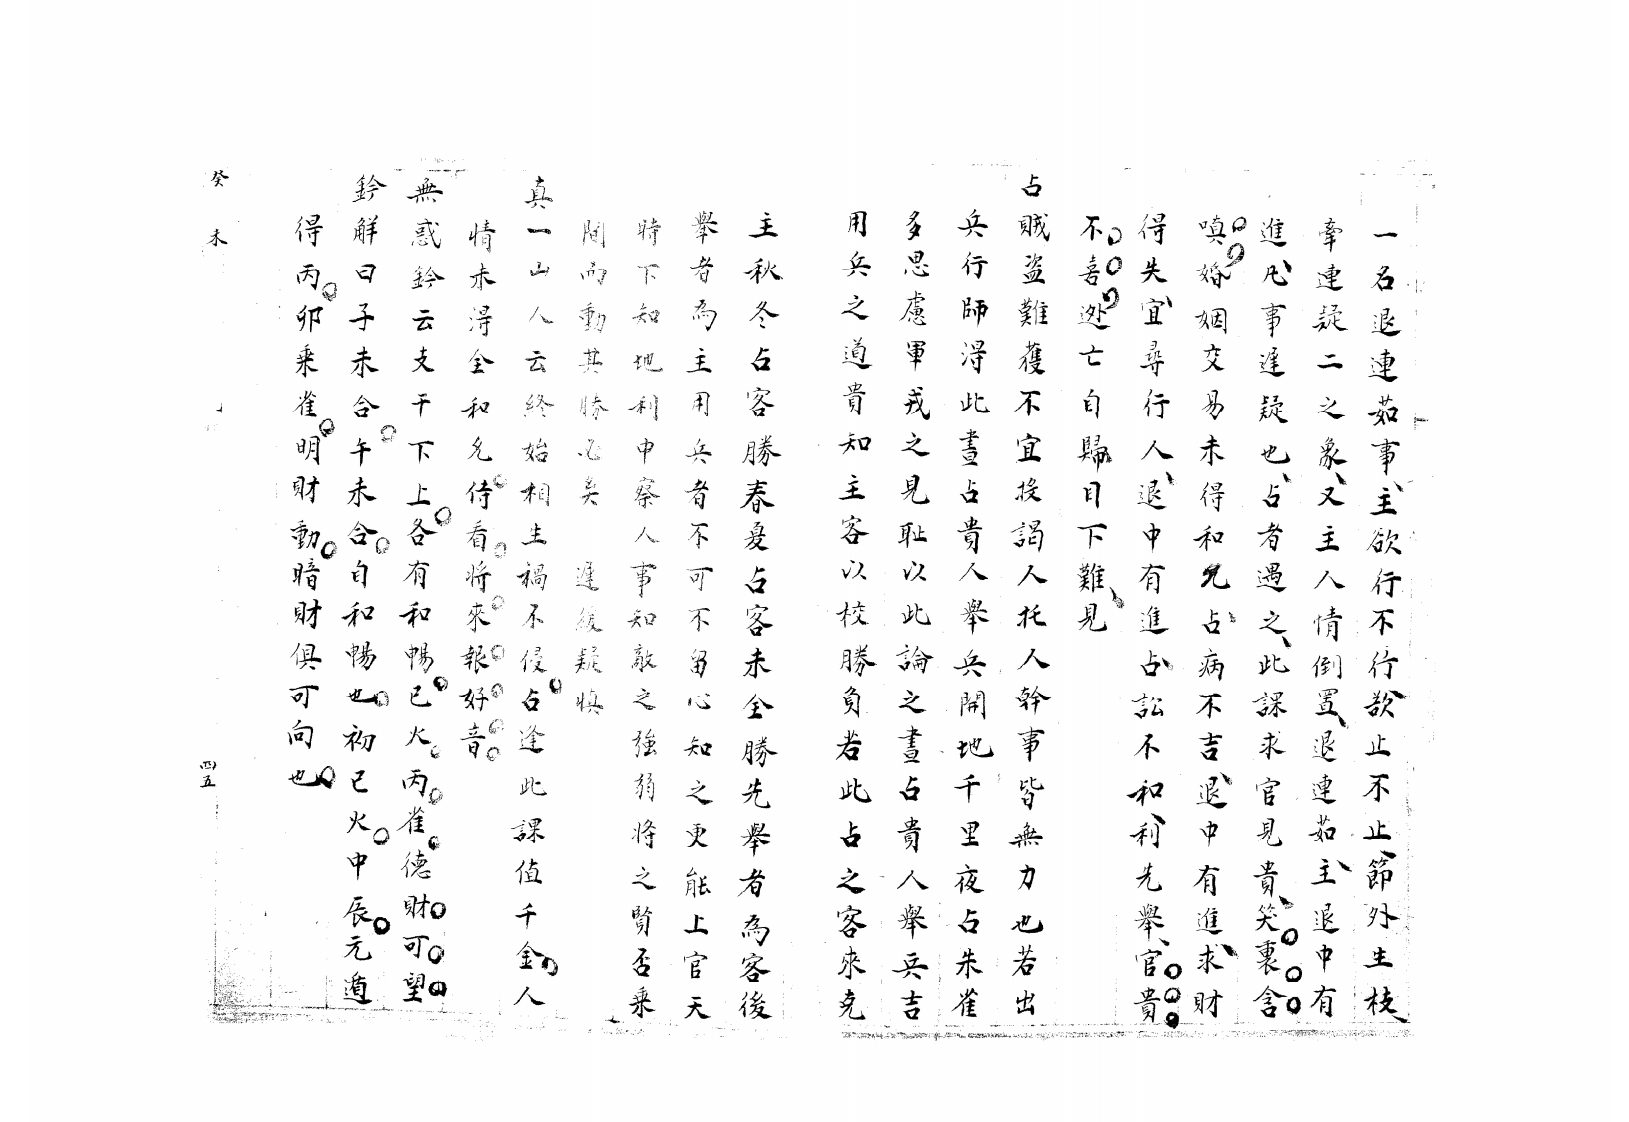 一名退連茹事主欲行不行欲止不止節外生枝
牽連疑二之象又主人情倒置退連茹主退中有
進凡事遲疑也占者遇之此課求官見貴笑裏含
嗔婚姻交易未得和允占病不吉退中有進求財
得失宜尋行人退中有進占訟不和利先舉官貴
不喜逃亡自歸目下難見
占賊盜難獲不宜投謁人托人幹事皆無力也若出
兵行師淂此晝占貴人舉兵開地千里夜占朱雀
多思慮軍戎之見耻以此論之晝占貴人舉兵吉
用兵之道貴知主客以校勝負若此占之客來克
主秋冬占客勝春夏占客未全勝先舉者為客後
舉者為主用兵者不可不留心知之更能上官天
時下知地利中察人事知敵之強弱將之賢否乘
間而動其勝必矣　遲後疑慎
真一山人云終始相生禍不侵占逢此課值千金人
情未淂全和允侍看將來報好音
無惑鈐云支干下上各有和暢已火丙雀德財可望
鈐解曰子未合午未合自和暢也初巳火中辰元遁
得丙卯乘雀明財動暗財俱可向也
癸未
四五